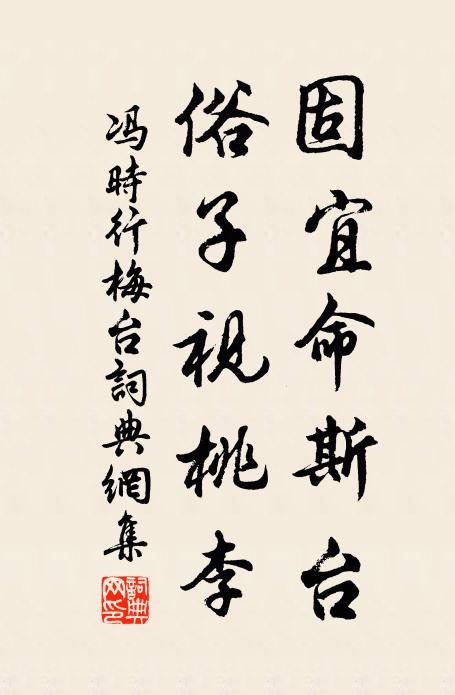 固宜命斯台
俗子视桃李
冯時行梅台詞典網集
詞典网印